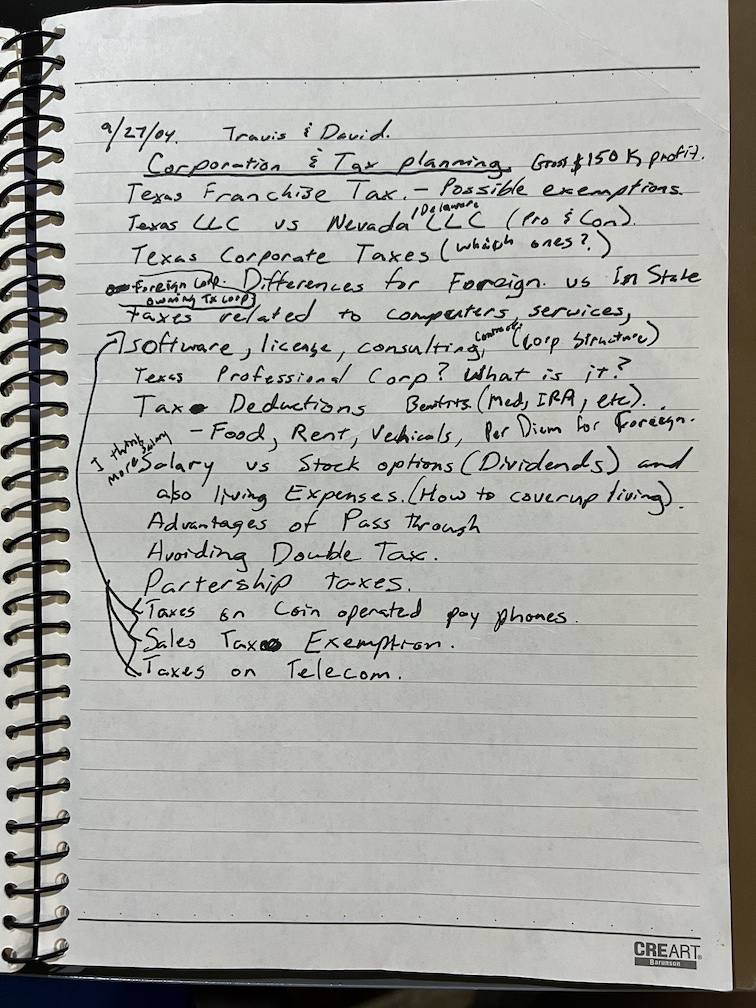 9/27/04. Travis & David.
Corporation & Tax planning. Gross $150K profit.
Texas Franchise Tax. - Possible exemptions.
Texas LLC vs Nevada/Delaware LLC (Pro & Con).
Texas Corporate Taxes (which ones?)
Foreign Corp. owning Tx Corp Differences for Foreign. vs In State
taxes related to computers, services,
software, license, consulting, contracts (Corp Structure)
Texas Professional Corp? What is it?
Tax Deductions Benefits. (Med, IRA, etc).
- Food, Rent, Vehicals, Per Dium for Foreign.
I think more salary
Salary vs Stock options (Dividends) and
also living Expenses. (How to coverup living).
Advantages of Pass through
Avoiding Double Tax.
Partership taxes.
Taxes on Coin operated pay phones.
Sales Tax Exemption.
Taxes on Telecom.
CREART
Barunson